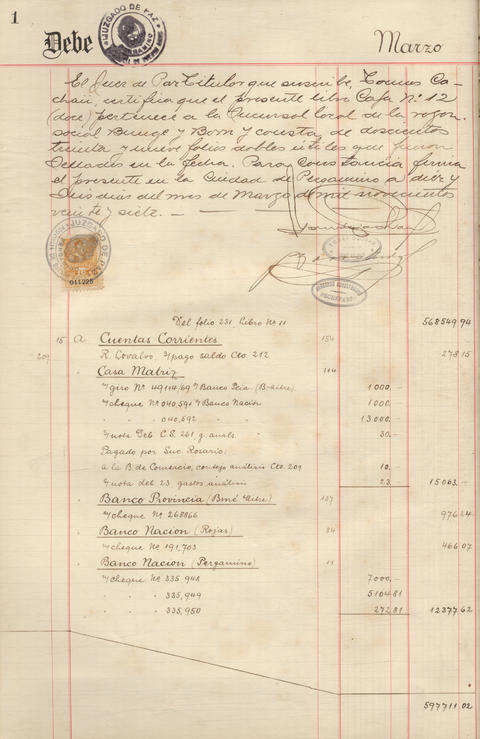 1
JUZGADO DE PAZ
Debe
Marzo
El Juez de Paz Titular que suscribe, Tomas Ca-
, certifica que el presente libro Caja Nº 12
(doce) pertenece a la Sucursal local de la razon
social Bunge y Born y consta de doscientos
treinta y nueve folios dobles útiles que fueron
Sellados en la fecha. Para Constancia firma
el presente en la Ciudad de Pergamino a diez y
seis dias del mes de Marzo de mil novecientos
veinte y siete.
JUZGADO DE PAZ
011225
Del folio 231, Libro Nº 11 568549 94
15 A Cuentas Corrientes 154
209 R. Lovalvo, s/pago saldo Cto. 212 278 15
Casa Matriz 114
s/giro Nº 49114/69 s/Banco Pcia (B. Mitre) 1000.-
s/cheque Nº 040,591 s/Banco Nación 1000.-
" " 040,592 " " 13000.-
s/nota Deb. C.S. 261 g. anals. 30.-
Pagado por Suc Rosario:
a la B de Comercio, análisis Cto. 209 10.-
s/nota deb 23, gastos análisis 23.- 15063.-
Banco Provincia (Bmé Mitre) 187
s/cheque Nº 268866 976 24
Banco Nacion (Rojas) 84
s/cheque Nº 191,703 466 07
Banco Nacion (Pergamino) 11
s/cheque Nº 335,948 7000.-
" " " 335,949 5104 81
" " " 335,950 272 81 12377 62
597711 02